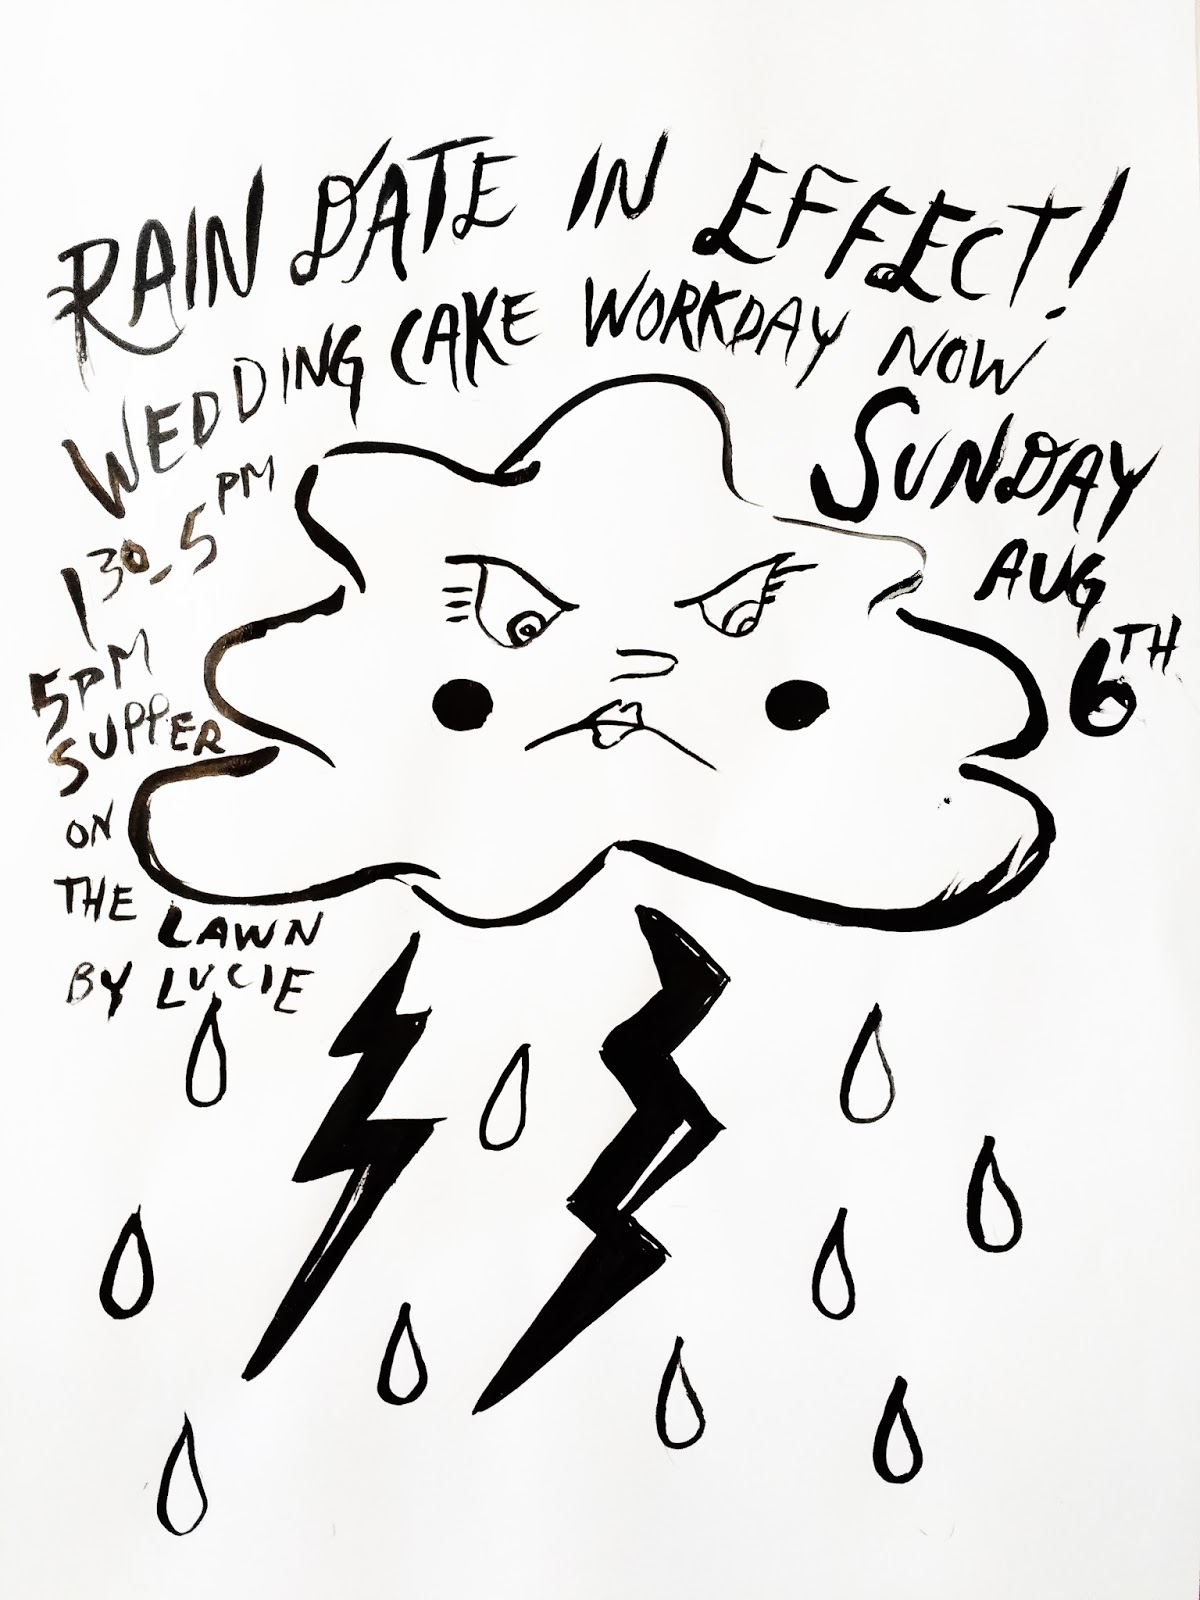 RAIN DATE IN EFFECT!
WEDDING CAKE WORKDAY NOW
SUNDAY
AUG
6TH
130-5PM
5PM
SUPPER
ON
THE LAWN
BY LUCIE